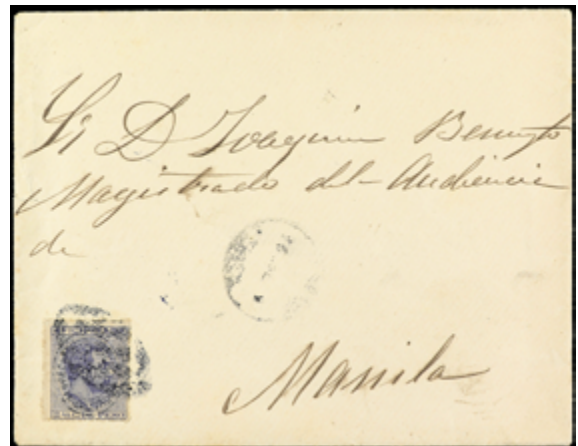 Sr D Joaquin
Magistrado de la Audiencia
de
Manila